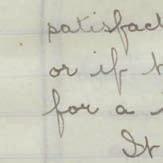 satisfact
or if t
for a
It